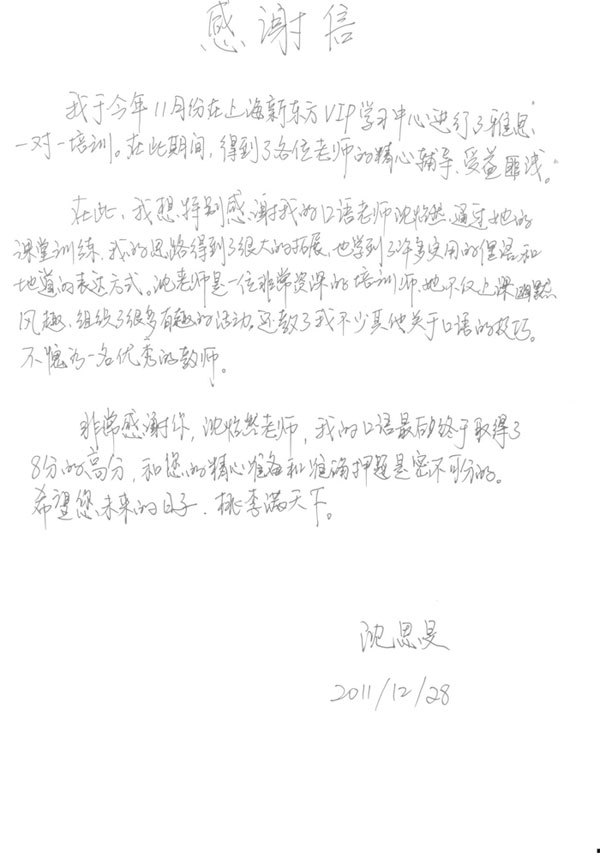 感谢信
我于今年11月份在上海新东方VIP学习中心进行了雅思
一对一培训。在此期间,得到了各位老师的精心辅导、受益匪浅。
在此,我想特别感谢我的口语老师沈怡然。通过她的
课堂训练,我的思路得到了很大的拓展,也学到了许多实用的俚语和
地道的表达方式。沈老师是一位非常资深的培训师,她不仅上课幽默
风趣,组织了很多有趣的活动。还教了我不少其他关于口语的技巧。
不愧为一名优秀的教师。
非常感谢你,沈怡然老师,我的口语最后终于取得了
8分的高分,和您的精心准备和准确押题是密不可分的。
希望您未来的日子,桃李满天下。
沈思旻
2011/12/28